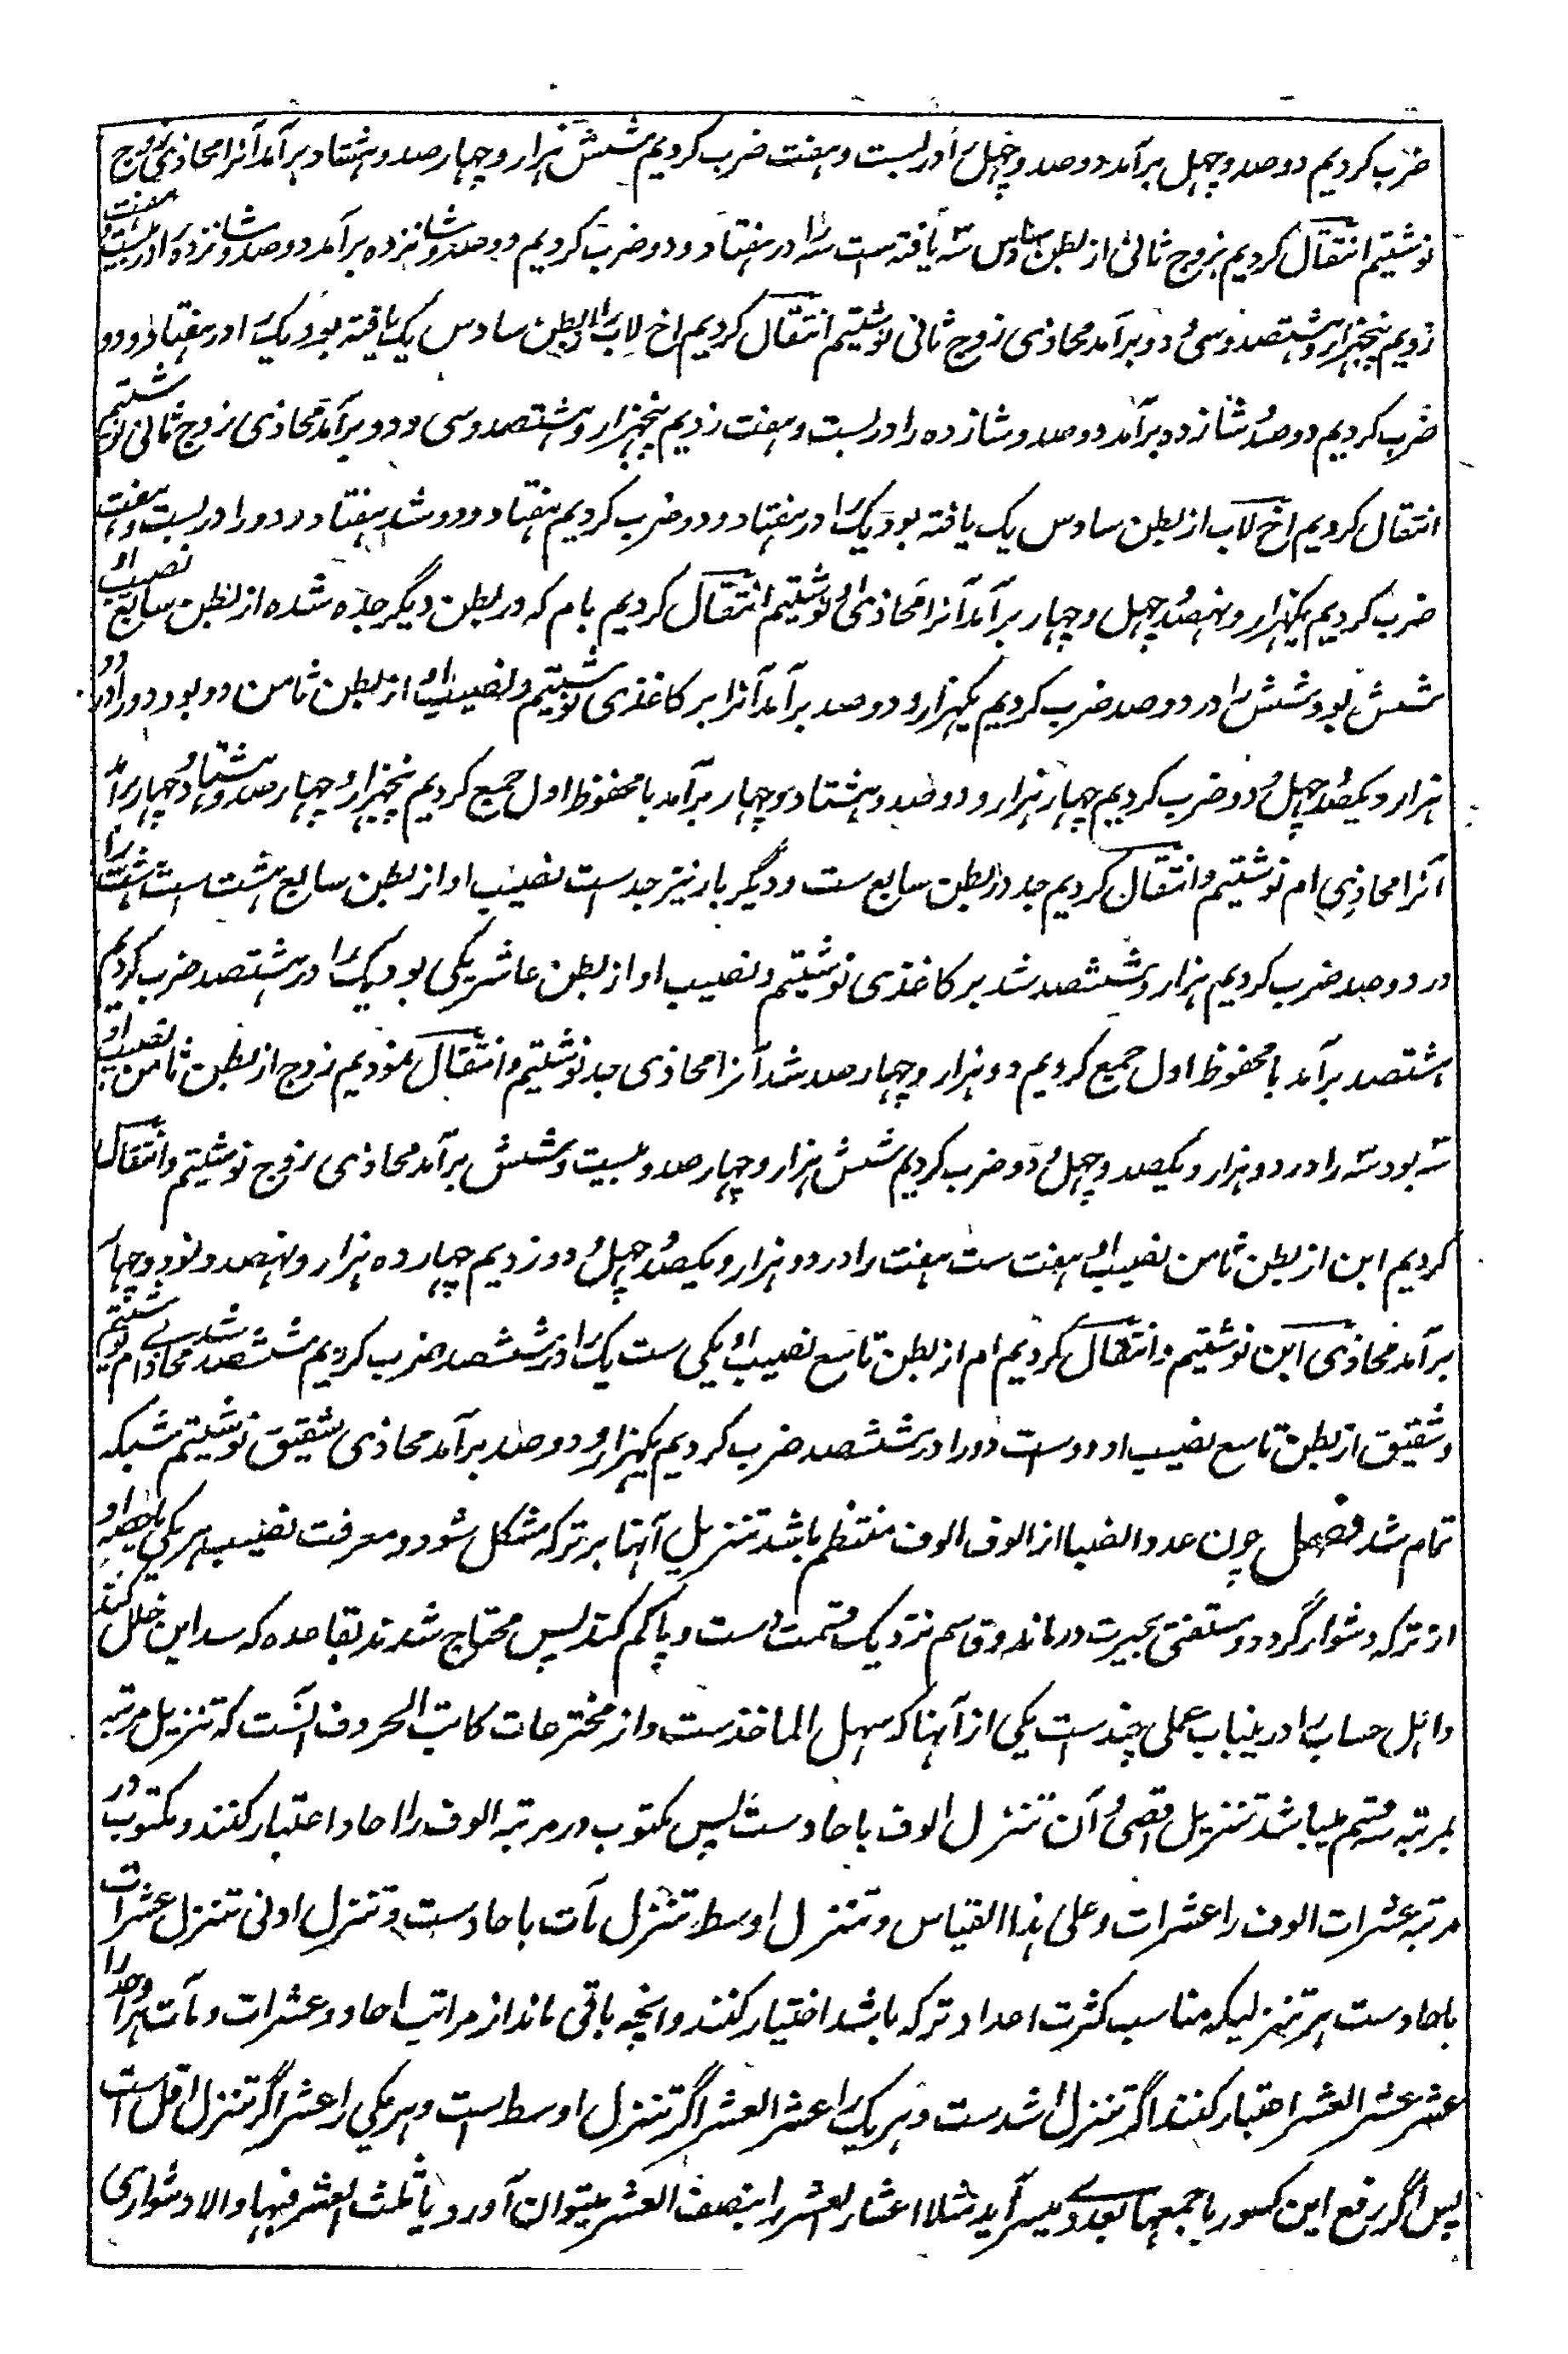 ضرب کردیم دوصد و چهل برآمد دوصد و چهل را در بست و هفت ضرب کردیم شش هزار و چهار صد و هشتاد برآمد آنرا محاذی زوج
نوشتیم انتقال کردیم بزوج ثانی از بطن سادس سه یافته است سه را در هفتاد و دو ضرب کردیم دوصد و شانزده برآمد دوصد و شانزده را در بست و هفت
زدیم پنجهزار و هشتصد و سی و دو برآمد محاذی زوج ثانی نوشتیم انتقال کردیم اخ لاب را از بطن سادس یک یافته بود یک را در هفتاد و دو
ضرب کردیم دوصد و شانزده برآمد دوصد و شانزده را در بست و هفت زدیم پنجهزار و هشتصد و سی و دو برآمد محاذی زوج ثانی نوشتیم
انتقال کردیم اخ لاب از بطن سادس یک یافته بود یک را در هفتاد و دو ضرب کردیم هفتاد و دو شد هفتاد و دو را در بست و هفت
ضرب کردیم یکهزار و نهصد و چهل و چهار برآمد آنرا محاذی او نوشتیم انتقال کردیم بام که در بطن دیگر جده شده از بطن سابع نصیب او
شش بود شش را در دوصد ضرب کردیم یکهزار و دوصد برآمد آنرا بر کاغذی نوشتیم و نصیب او از بطن ثامن دو بود دو را در دو
هزار و یکصد و چهل و دو ضرب کردیم چهار هزار و دوصد و هشتاد و چهار برآمد با محفوظ اول جمع کردیم پنجهزار و چهار صد و هشتاد و چهار برآمد
آنرا محاذی ام نوشتیم و انتقال کردیم جد در بطن سابع ست و دیگر بار نیز جد ست نصیب او از بطن سابع هشت ست هشت را
در دوصد ضرب کردیم هزار و ششصد شد بر کاغذی نوشتیم و نصیب او از بطن عاشر یکی بود یک را در هشتصد ضرب کردیم
هشتصد برآمد با محفوظ اول جمع کردیم دو هزار و چهار صد شد آنرا محاذی جد نوشتیم و انتقال نمودیم زوج از بطن ثامن نصیب او
سه بود سه را در دو هزار و یکصد و چهل و دو ضرب کردیم شش هزار و چهار صد و بیست و شش برآمد محاذی زوج نوشتیم و انتقال
کردیم ابن از بطن ثامن نصیب او هفت ست هفت را در دو هزار و یکصد و چهل و دو زدیم چهار ده هزار و نهصد و نود و چهار
برآمد محاذی ابن نوشتیم و انتقال کردیم ام از بطن تاسع نصیب او یکی ست یک را در ششصد ضرب کردیم ششصد شد محاذی ام نوشتیم
و شقیق از بطن تاسع نصیب او دو ست دو را در ششصد ضرب کردیم یکهزار و دوصد برآمد محاذی شقیق نوشتیم شبکه
تمام شد فصل چون عدد انصبا از الوف الوف منتظم باشد تنزیل آنها بر ترکه مشکل شود و معرفت نصیب هر یکی باحصه او
از ترکه دشوار گردد و مستفتی بحیرت در ماند و قاسم نزدیک قسمت دست و پا گم کند پس محتاج شدند بقاعده که سد این خلل کند
و اهل حساب را درینباب عملی چند ست یکی از آنها که سهل الماخذست و از مخترعات کاتب الحروف آنست که تنزیل مرتبه
بمرتبه سه قسم میباشد تنزیل اقصی و آن تنزل الوف باحادست پس مکتوب در مرتبه الوف را احاد اعتبار کنند و مکتوب در
مرتبه عشرات الوف را عشرات و علی هذا القیاس و تنزل اوسط تنزل مآت باحادست و تنزل ادنی تنزل عشرات
باحادست هر تنزلیکه مناسب کثرت اعداد ترکه باشد اختیار کنند و انچه باقی ماند از مراتب احاد و عشرات و مآت هر واحد را
عشر عشر العشر اعتبار کنند اگر تنزل اشدست و هر یک را عشر العشر اگر تنزل اوسط است و هر یکی را عشر اگر تنزل اقل است
پس اگر رفع این کسور باجمعها بعددی میسر آید مثلا اعشار العشر را بنصف العشر میتوان آورد یا ثلث العشر فبها والا دشواری